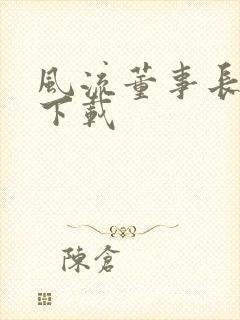 風流董事長
下載
陳倉